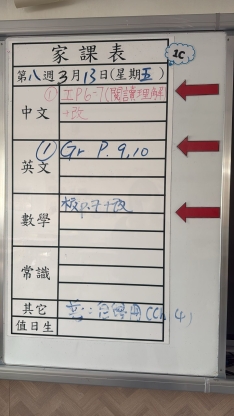 家課表
1C
第八週3月13日(星期五)
中文
① 工P6-7(閱讀理解)
+改
英文
① Gr P.9,10
數學
+改
常識
其它
值日生